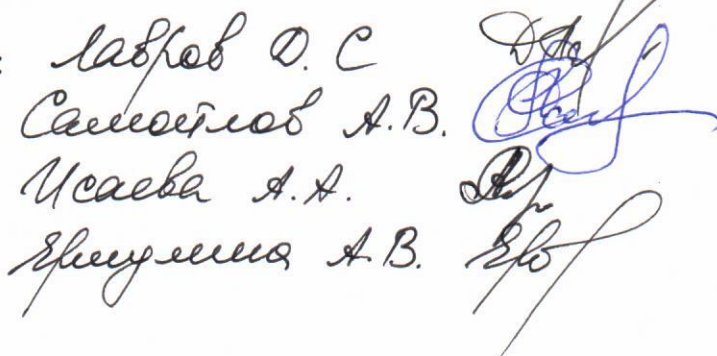 Лавров Д. С
Самойлов А.В.
Исаева А.А.
Ермулина А.В.